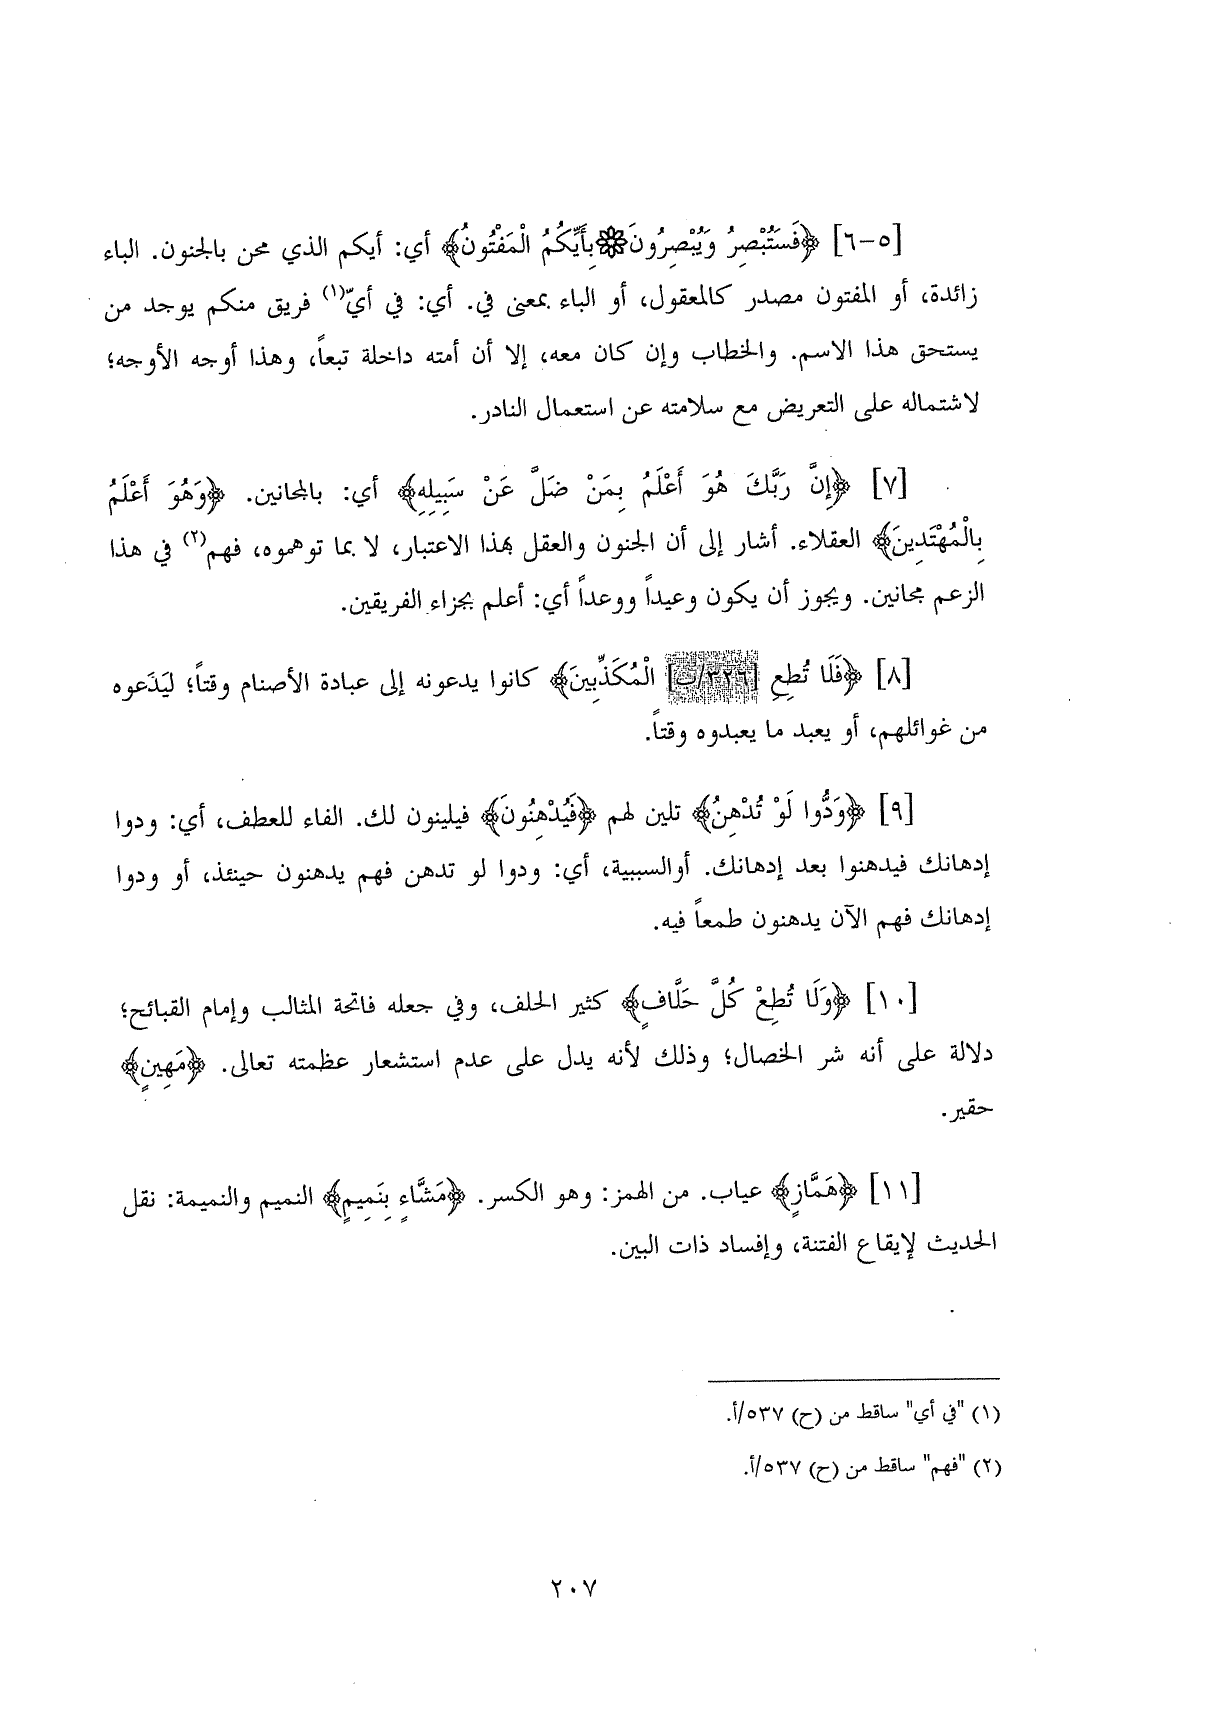 [٥-٦] ﴿فَسَتُبْصِرُ وَيُبْصِرُونَ۞بِأَيِّكُمُ الْمَفْتُونُ﴾ أي: أيكم الذي محن بالجنون. الباء
زائدة، أو المفتون مصدر كالمعقول، أو الباء بمعنى في. أي: في أيّ(١) فريق منكم يوجد من
يستحق هذا الاسم. والخطاب وإن كان معه، إلا أن أمته داخلة تبعاً، وهذا أوجه الأوجه؛
لاشتماله على التعريض مع سلامته عن استعمال النادر.
[٧] ﴿إِنَّ رَبَّكَ هُوَ أَعْلَمُ بِمَنْ ضَلَّ عَنْ سَبِيلِهِ﴾ أي: بالمجانين. ﴿وَهُوَ أَعْلَمُ
بِالْمُهْتَدِينَ﴾ العقلاء. أشار إلى أن الجنون والعقل بهذا الاعتبار، لا بما توهموه، فهم(٢) في هذا
الزعم مجانين. ويجوز أن يكون وعيداً ووعداً أي: أعلم بجزاء الفريقين.
[٨] ﴿فَلَا تُطِعِ [٣٢٦/ب] الْمُكَذِّبِينَ﴾ كانوا يدعونه إلى عبادة الأصنام وقتاً؛ ليَدَعوه
من غوائلهم، أو يعبد ما يعبدوه وقتاً.
[٩] ﴿وَدُّوا لَوْ تُدْهِنُ﴾ تلين لهم ﴿فَيُدْهِنُونَ﴾ فيلينون لك. الفاء للعطف، أي: ودوا
إدهانك فيدهنوا بعد إدهانك. أوالسببية، أي: ودوا لو تدهن فهم يدهنون حينئذ، أو ودوا
إدهانك فهم الآن يدهنون طمعاً فيه.
[١٠] ﴿وَلَا تُطِعْ كُلَّ حَلَّافٍ﴾ كثير الحلف، وفي جعله فاتحة المثالب وإمام القبائح؛
دلالة على أنه شر الخصال؛ وذلك لأنه يدل على عدم استشعار عظمته تعالى. ﴿مَهِينٍ﴾
حقير.
[١١] ﴿هَمَّازٍ﴾ عياب. من الهمز: وهو الكسر. ﴿مَشَّاءٍ بِنَمِيمٍ﴾ النميم والنميمة: نقل
الحديث لإيقاع الفتنة، وإفساد ذات البين.
(١) "في أي" ساقط من (ح) ٥٣٧/أ.
(٢) "فهم" ساقط من (ح) ٥٣٧/أ.
٢٠٧